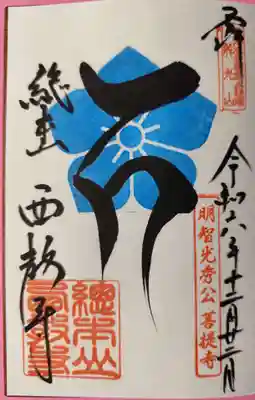 奉
令和六年十二月廿二日
明智光秀公菩提寺
総本山
西教寺
總本山
西教寺